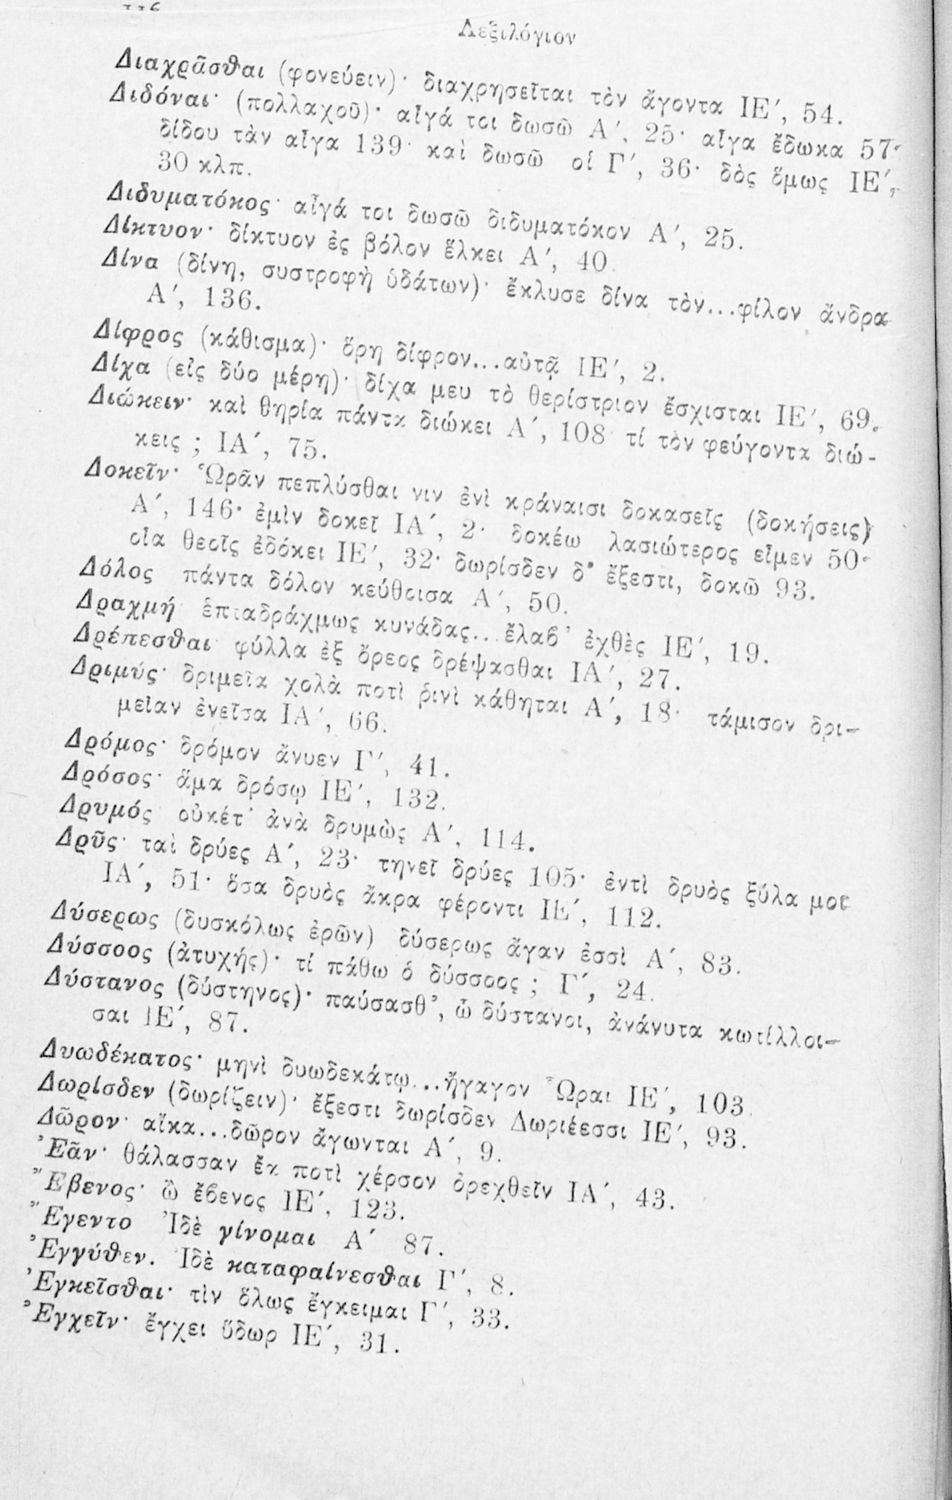 Λεξιλόγιον
Διαχρᾶσθαι (φονεύειν)· διαχρησεῖται τὸν ἄγοντα ΙΕ΄, 54.
Διδόναι· (πολλαχοῦ)· αἶγά τοι δωσῶ Α΄, 25· αἶγα ἔδωκα 57·
δίδου τὰν αἶγα 139· καὶ δωσῶ οἱ Γ΄, 36· δὸς ὅμως ΙΕ΄,
30 κλπ.
Διδυματόκος· αἶγά τοι δωσῶ διδυματόκον Α΄, 25.
Δίκτυον· δίκτυον ἐς βόλον ἕλκει Α΄, 40.
Δίνα (δίνη, συστροφὴ ὑδάτων)· ἔκλυσε δίνα τὸν...φίλον ἄνδρα
Α΄, 136.
Δίφρος (κάθισμα)· ὅρη δίφρον...αὐτᾷ ΙΕ΄, 2.
Δίχα (εἰς δύο μέρη)· δίχα μευ τὸ θερίστριον ἔσχισται ΙΕ΄, 69.
Διώκειν· καὶ θηρία πάντα διώκει Α΄, 108· τί τὸν φεύγοντα διώ-
κεις ; ΙΑ΄, 75.
Δοκεῖν· Ὡρᾶν πεπλύσθαι νιν ἐνὶ κράναισι δοκασεῖς (δοκήσεις)
Α΄, 146· ἐμὶν δοκεῖ ΙΑ΄, 2· δοκέω λασιώτερος εἶμεν 50·
οἷα θεοῖς ἐδόκει ΙΕ΄, 32· δωρίσδεν δ' ἔξεστι, δοκῶ 93.
Δόλος πάντα δόλον κεύθοισα Α΄, 50.
Δραχμή ἑπταδράχμως κυνάδας...ἔλαβ' ἐχθὲς ΙΕ΄, 19.
Δρέπεσθαι φύλλα ἐξ ὄρεος δρέψασθαι ΙΑ΄, 27.
Δριμύς· δριμεῖα χολὰ ποτὶ ῥινὶ κάθηται Α΄, 18· τάμισον δρι-
μεῖαν ἐνεῖσα ΙΑ΄, 66.
Δρόμος· δρόμον ἄνυεν Γ΄, 41.
Δρόσος· ἅμα δρόσῳ ΙΕ΄, 132.
Δρυμός οὐκέτ' ἀνὰ δρυμὼς Α΄, 114.
Δρῦς· ταὶ δρύες Α΄, 23· τηνεῖ δρύες 105· ἐντὶ δρυὸς ξύλα μοι
ΙΑ΄, 51· ὅσα δρυὸς ἄκρα φέροντι ΙΕ΄, 112.
Δύσερως (δυσκόλως ἐρῶν) δύσερως ἄγαν ἐσσὶ Α΄, 83.
Δύσσοος (ἀτυχής)· τί πάθω ὁ δύσσοος ; Γ΄, 24.
Δύστανος (δύστηνος)· παύσασθ', ὦ δύστανοι, ἀνάνυτα κωτίλλοι-
σαι ΙΕ΄, 87.
Δυωδέκατος· μηνὶ δυωδεκάτῳ...ἤγαγον Ὧραι ΙΕ΄, 103.
Δωρίσδεν (δωρίζειν)· ἔξεστι δωρίσδεν Δωριέεσσι ΙΕ΄, 93.
Δῶρον· αἴκα...δῶρον ἄγωνται Α΄, 9.
Ἐᾶν· θάλασσαν ἔα ποτὶ χέρσον ὀρεχθεῖν ΙΑ΄, 43.
Ἔβενος· ὢ ἔβενος ΙΕ΄, 123.
Ἔγεντο Ἰδὲ γίνομαι Α΄ 87.
Ἐγγύθεν. Ἰδὲ καταφαίνεσθαι Γ΄, 8.
Ἐγκεῖσθαι· τὶν ὅλως ἔγκειμαι Γ΄, 33.
Ἐγχεῖν· ἔγχει ὕδωρ ΙΕ΄, 31.